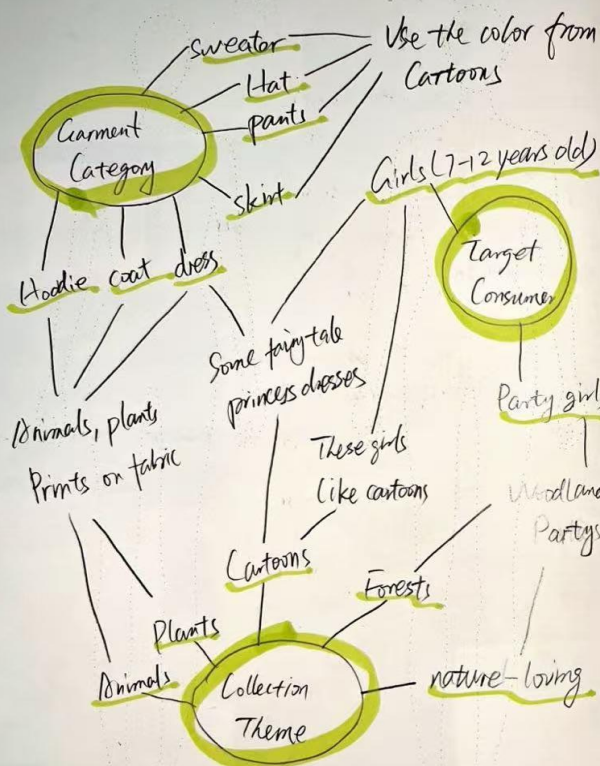 sweator
Use the color from
Cartoons
Hat
pants
Garment
Category
skirt
Girls (7-12 years old)
Target
Consumer
Hoodie coat dress
Some fairytale
princess dresses
Party girl
Animals, plants
Prints on fabric
These girls
like cartoons
Woodland
Partys
Cartoons
Forests
Plants
Animals
Collection
Theme
nature-loving